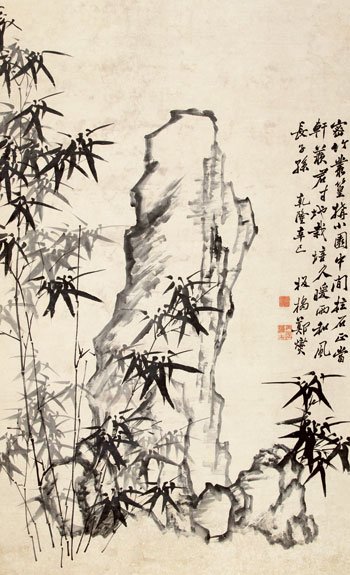 密竹叢篁擁小園中間柱石正當
軒羨君寸地栽培久暖雨和風
長子孫 乾隆辛巳 板橋鄭燮